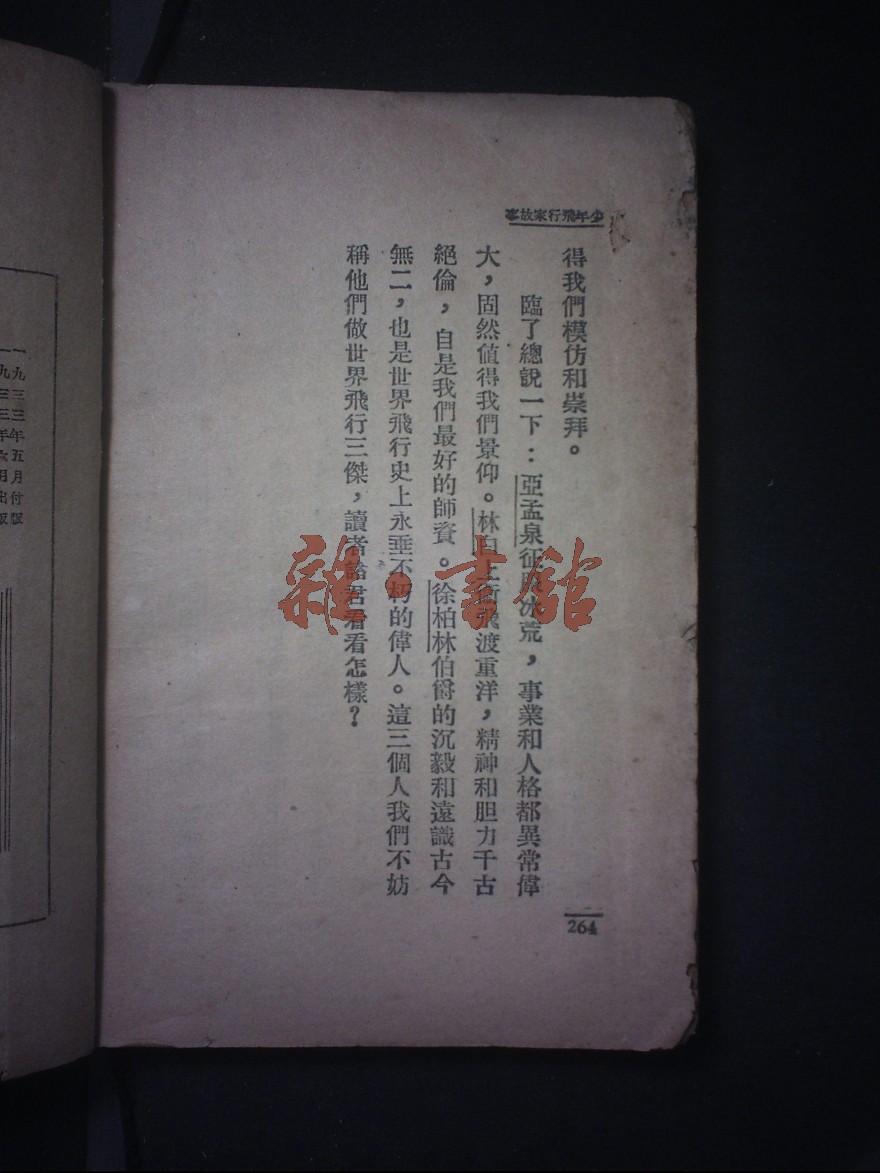 少年飛行家故事
得我們模仿和崇拜。
臨了總說一下：亞孟泉征服冰荒，事業和人格都異常偉
大，固然值得我們景仰。林白上街飛渡重洋，精神和胆力千古
絕倫，自是我們最好的師資。徐柏林伯爵的沉毅和遠識古今
無二，也是世界飛行史上永垂不朽的偉人。這三個人我們不妨
稱他們做世界飛行三傑，讀者諸君看看怎樣？
264
一九三三年五月付版
一九三三年六月出版
雜·書館